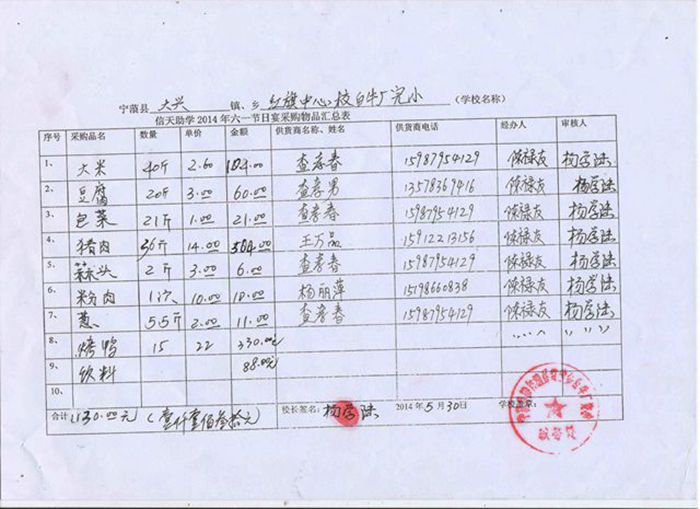 宁蒗县 大兴 镇、乡 红旗中心校白牛厂完小 (学校名称)
信天助学2014年六一节日宴采购物品汇总表
序号 采购品名 数量 单价 金额 供货商名称、姓名 供货商电话 经办人 审核人
1、 大米 40斤 2.60 104.00 查孝春 15987954129 杨学陆
2、 豆腐 20斤 3.00 60.00 查孝男 13578369416 杨学陆
3、 包菜 21斤 1.00 21.00 查孝春 15987954129 杨学陆
4、 猪肉 36斤 14.00 504.00 王万品 15912213156 杨学陆
5、 蒜头 2斤 3.00 6.00 查孝春 15987954129 杨学陆
6、 粉肉 10.00 10.00 杨丽萍 15198660838 杨学陆
7、 葱 5.5斤 2.00 11.00 查孝春 15987954129 杨学陆
8、 烤鸭 15 22 330.00
9、 饮料 88.00
10、
合计 1130.00元 (壹仟壹佰叁拾元 校长签名: 杨学陆 2014年5月30日 学校盖章: